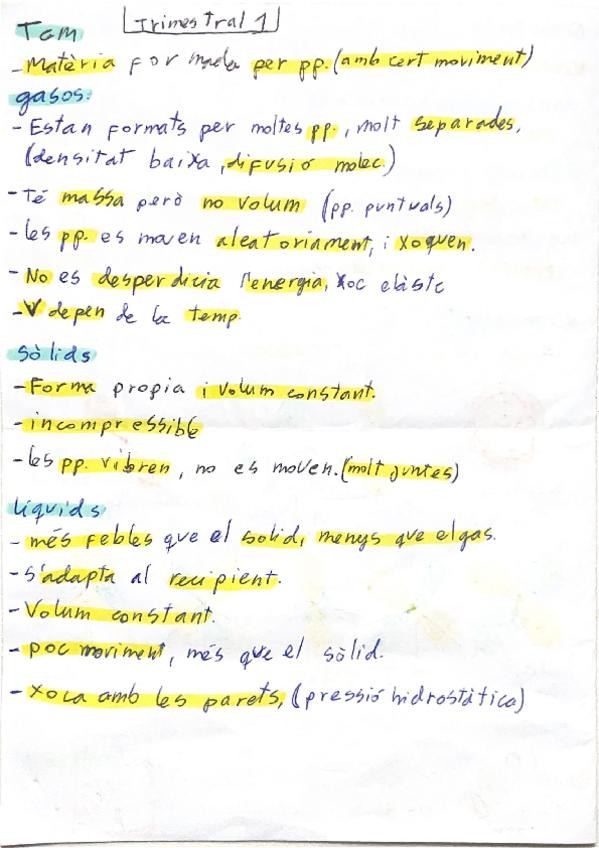 Trimestral 1
Tcm
- Matèria formada per pp. (amb cert moviment)
gasos:
- Estan formats per moltes pp., molt separades,
(densitat baixa, difusió molec.)
- Té massa però no volum (pp. puntuals)
- les pp. es mouen aleatoriament, i xoquen.
- No es desperdicia l'energia, xoc elàstc
- V depen de la temp.
Sòlids
- Forma propia i volum constant.
- incompressible
- les pp. vibren, no es moven. (molt juntes)
líquids
- més febles que el solid, menys que el gas.
- s'adapta al recipient.
- Volum constant.
- poc moviment, més que el sòlid.
- Xoca amb les parets, (pressió hidrostàtica)